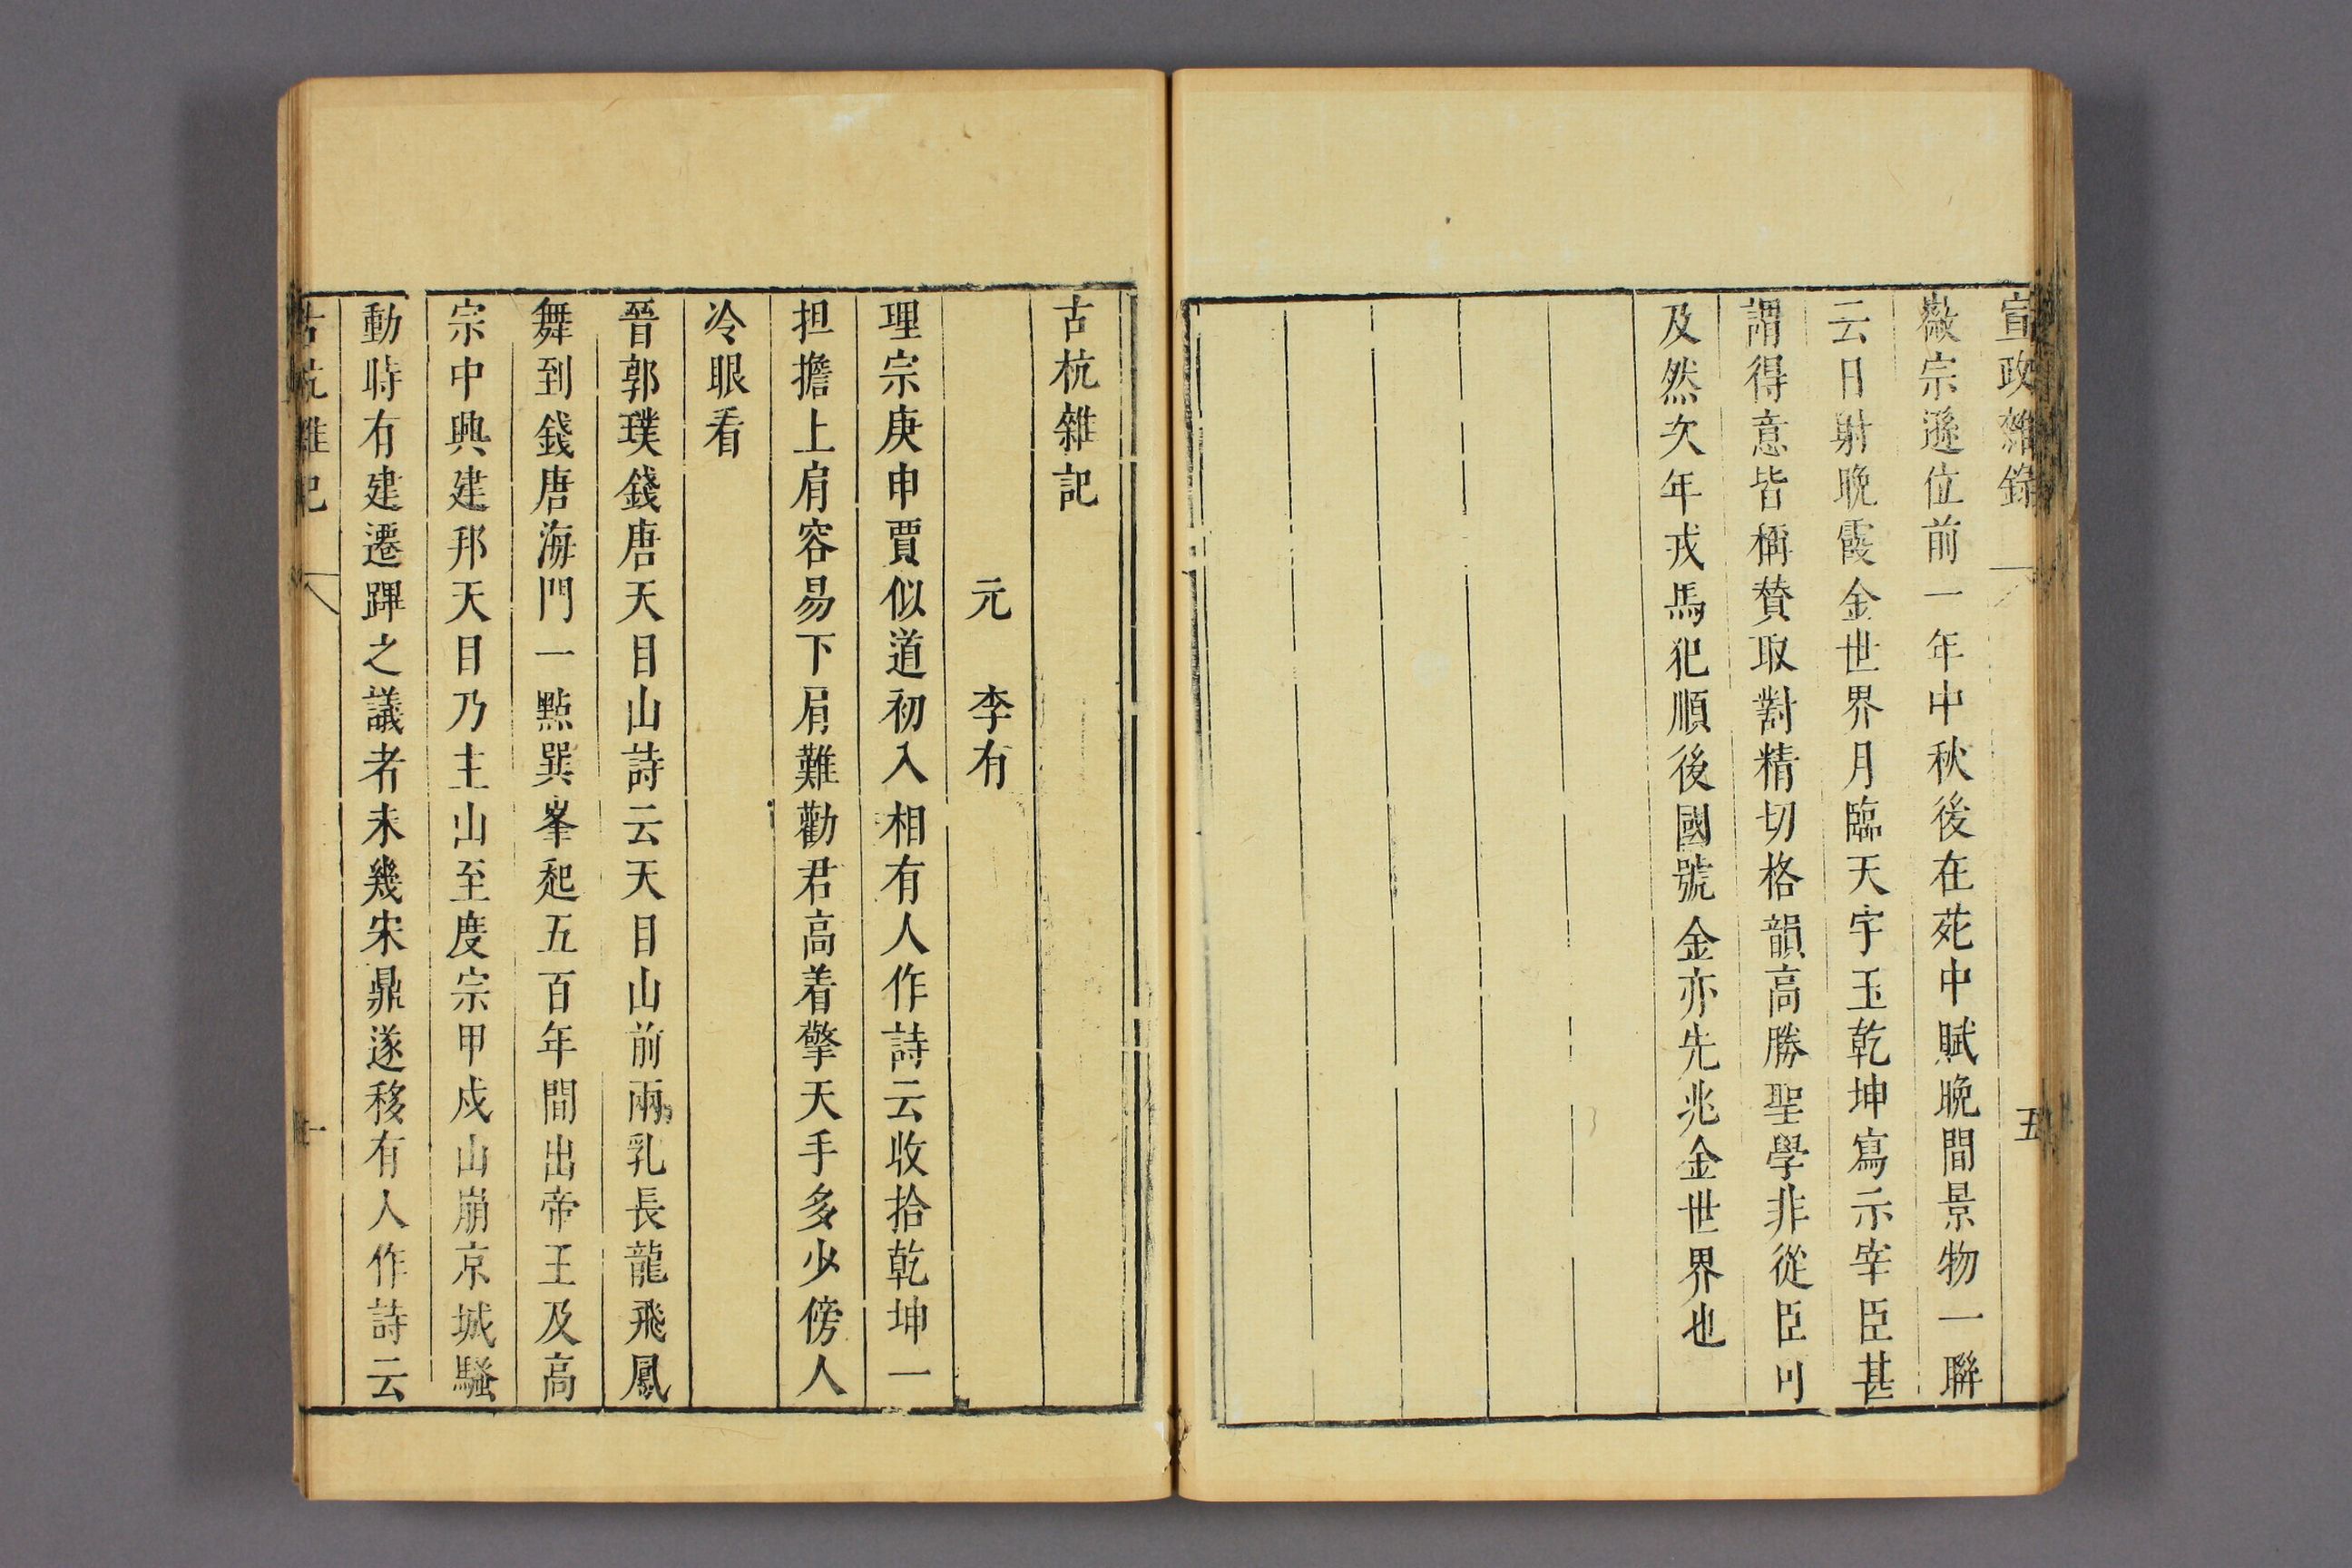 宣政雜錄 五
徽宗遜位前一年中秋後在苑中賦晚間景物一聯
云日射晚霞金世界月臨天宇玉乾坤寫示宰臣甚
謂得意皆稱賛取對精切格韻高勝聖學非從臣可
及然次年戎馬犯順後國號金亦先兆金世界也
古杭雜記
元 李有
理宗庚申賈似道初入相有人作詩云收拾乾坤一
担擔上肩容易下肩難勸君高着擎天手多少傍人
冷眼看
晉郭璞錢唐天目山詩云天目山前兩乳長龍飛鳳
舞到錢唐海門一點巽峯起五百年間出帝王及高
宗中興建邦天目乃主山至度宗甲戍山崩京城騷
動時有建遷蹕之議者未幾宋鼎遂移有人作詩云
古杭雜記 一